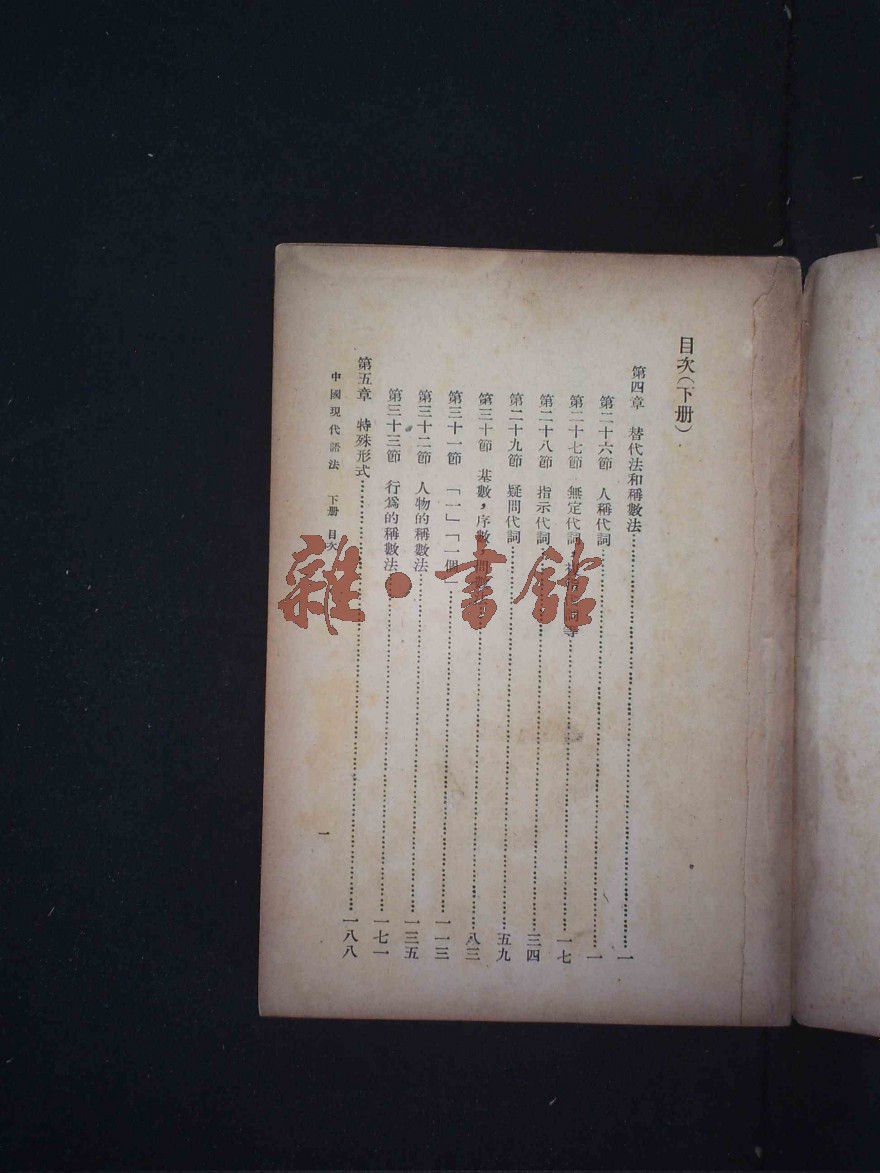 目次(下册)
第四章　替代法和稱數法……一
第二十六節　人稱代詞……一
第二十七節　無定代詞，等……一七
第二十八節　指示代詞……三四
第二十九節　疑問代詞……五九
第三十節　基數，序數，……八三
第三十一節　「一」「一個」……一一三
第三十二節　人物的稱數法……一三五
第三十三節　行爲的稱數法……一七一
第五章　特殊形式……一八八
中國現代語法　下册　目次
一
雜・書館